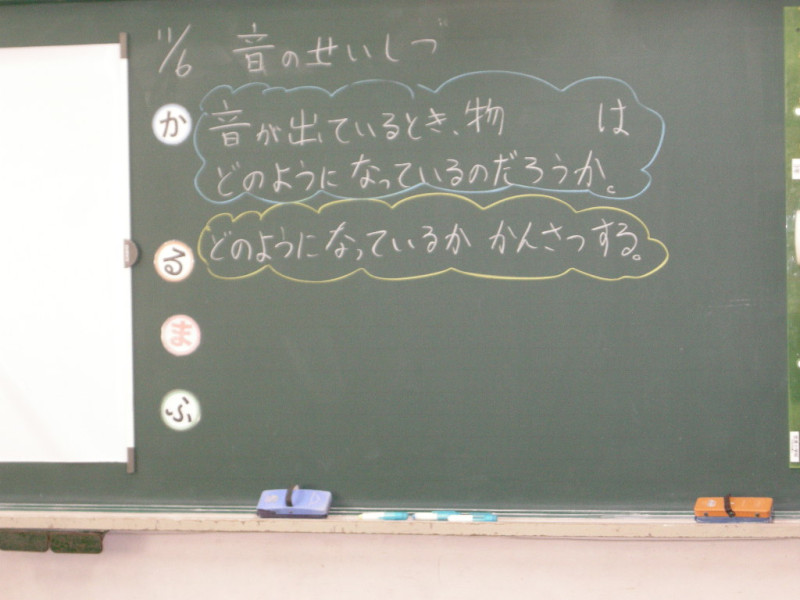 11/6 音のせいしつ
か
音が出ているとき、物 は
どのようになっているのだろうか。
る
どのようになっているか かんさつする。
ま
ふ